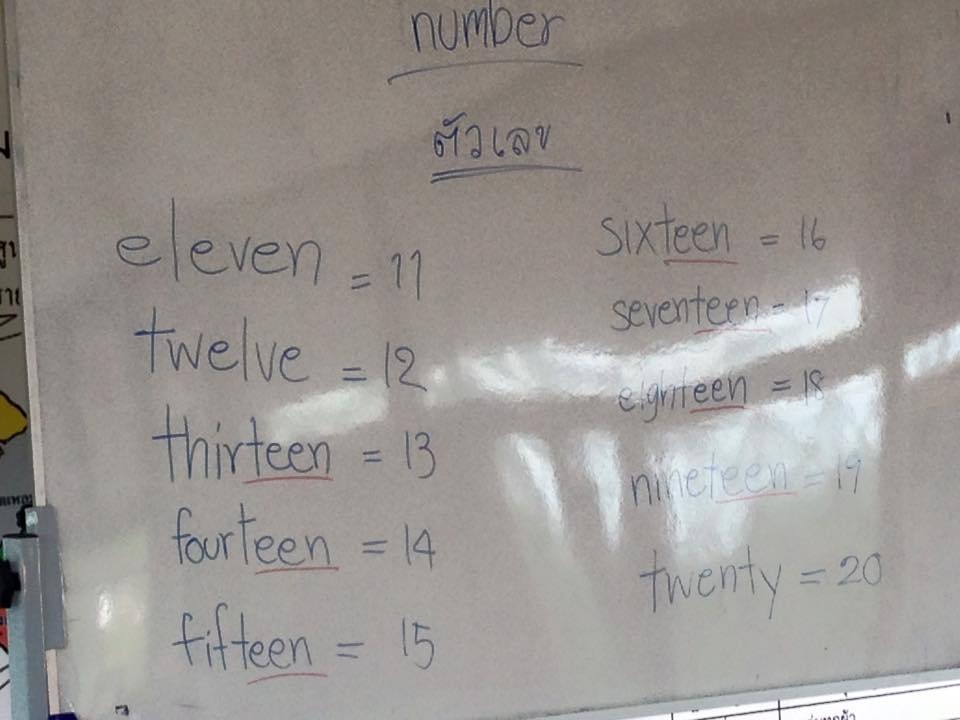 number
ตัวเลข
eleven = 11
twelve = 12
thirteen = 13
fourteen = 14
fifteen = 15
sixteen = 16
seventeen = 17
eighteen = 18
nineteen = 19
twenty = 20